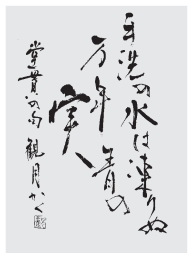 手洗の水は凍りぬ
万年青の
実
の句 観月かく